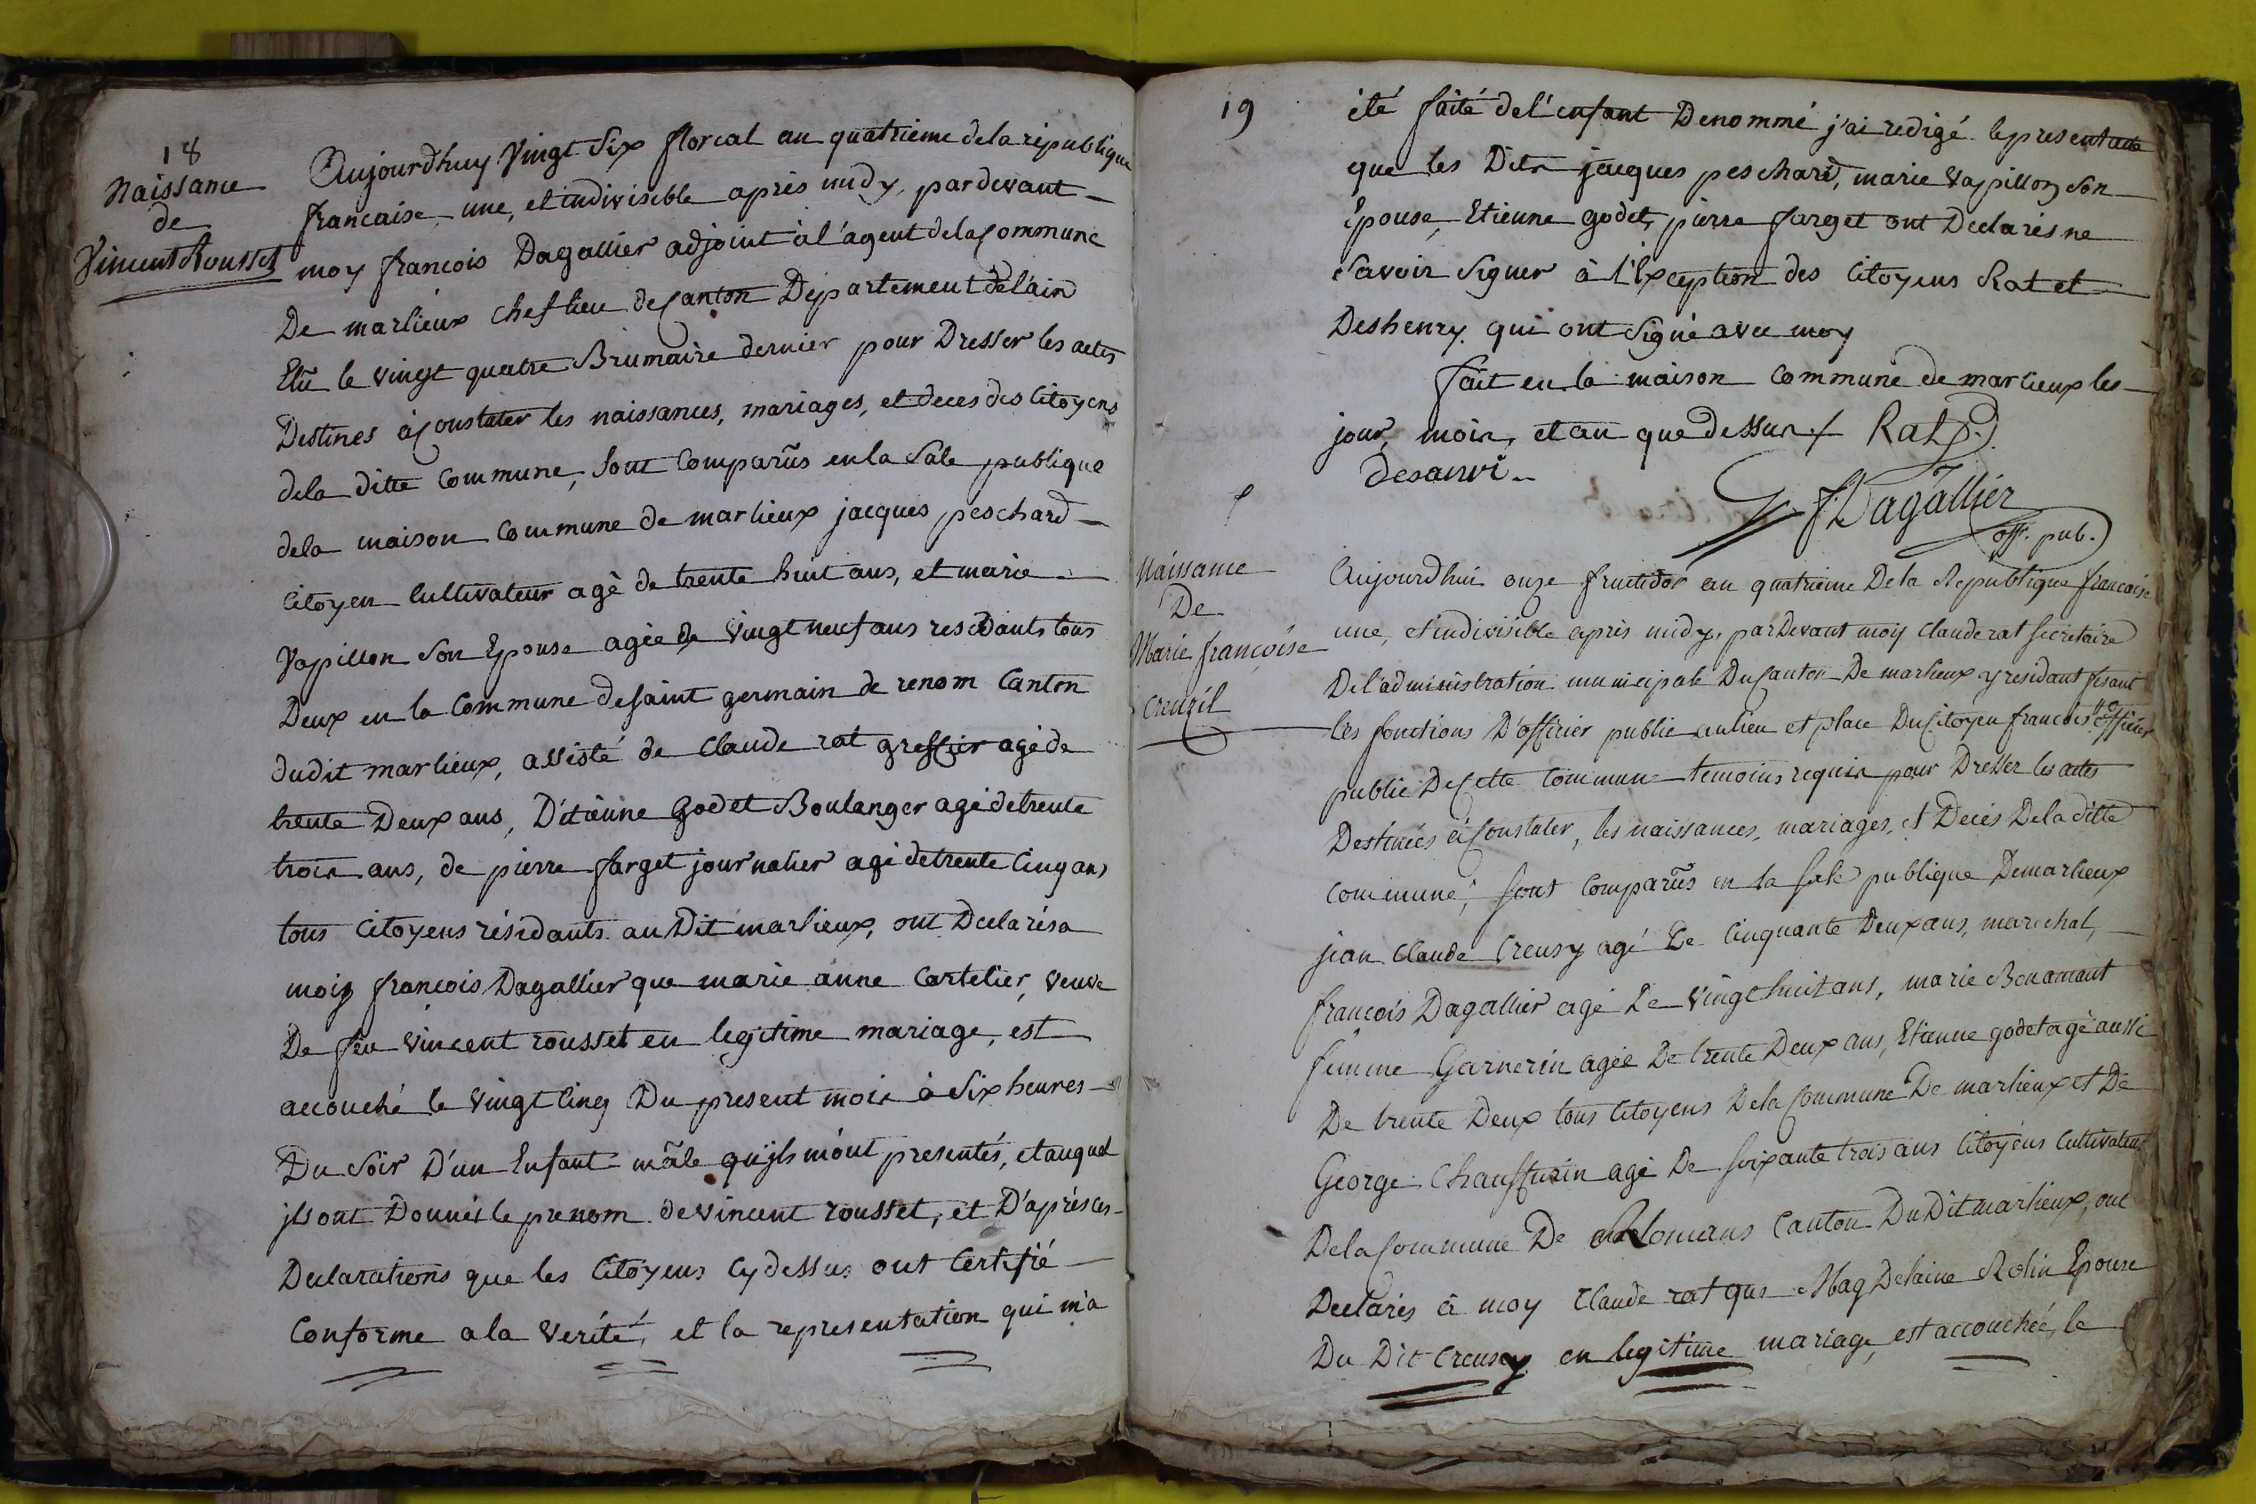 18
Naissance
de
Vincent Rousset
Aujourdhuy Vingt Six floreal an quatrieme de la république
francaise une, et indivisible après midy, pardevant
moy francois Dagallier adjoint à l'agent de la Commune
De marlieux chef lieu de Canton Département de l'ain
Elû le vingt quatre Brumaire dernier pour Dresser les actes
Destinés à Constater les naissances, mariages, et deces des Citoyens
de la ditte Commune, sont Comparûs en la Sale publique
de la maison Commune de marlieux jacques peschard
Citoyen Cultivateur agé de trente huit ans, et marie
Vapillon Son Epouse agée de Vingt neuf ans residants tous
Deux en la Commune de saint germain de renom Canton
dudit marlieux, assisté de Claude rat greffier agé de
trente Deux ans, D'étiènne Godet Boulanger agé de trente
trois ans, de pierre farget journalier agé de trente Cinq ans
tous Citoyens résidants au Dit marlieux, ont Declarés a
moy françois Dagallier que marie anne Cartelier, veuve
De feu Vincent rousset en legitime mariage, est
accouché le vingt Cinq Du present mois à Six heures
Du Soir D'un Enfant mâle qu'jls m'ont presentés, et auquel
jls ont Donnés le prenom de vincent rousset, et D'après ces
Declarations que les Citoyens Cy dessus ont Certifié
Conforme a la Verité, et la representation qui m'a
19
été faite de l'enfant Denommé j'ai redigé le present acte
que les Dits jacques peschard, marie Vapillon Son
Epouse, Etienne godet, pierre farget ont Declarés ne
Savoir Signer à l'Exception des Citoyens Rat et
Deshenry qui ont Signé avec moy
fait en la maison Commune de marlieux les
jour, mois, et an que dessus Rat
desanvi
f. Dagallier
off. pub.
Naissance
De
Marie françoise
Creuzil
Aujourdhui onze fructidor an quatrieme De la Republique francoise
une, et indivisible après midy, par Devant moy Claude rat secretaire
De l'administration municipale Du Canton De marlieux y residant fesant
les fonctions D'officier public au lieu et place Du Citoyen francois officier
public De Cette Commune temoins requis pour Dresser les actes
Destinées à Constater, les naissances, mariages, et Décès De la ditte
Commune; sont Comparûs en la sale publique De marlieux
jean Claude Creusy agé De Cinquante Deux ans, marechal,
francois Dagallier agé De Vingt huit ans, marie Bonamant
femme Garnerin agée De trente Deux ans, Etienne godet agé aussi
De trente Deux tous Citoyens De la Commune De marlieux et De
George Chauffurin agé De soixante trois ans Citoyens Cultivateur
De la Commune De Romans Canton Du Dit marlieux, ont
Declarés à moy Claude rat que MagDelaine Rolin Epouse
Du Dit Creusy en legitime mariage, est accouchée, le